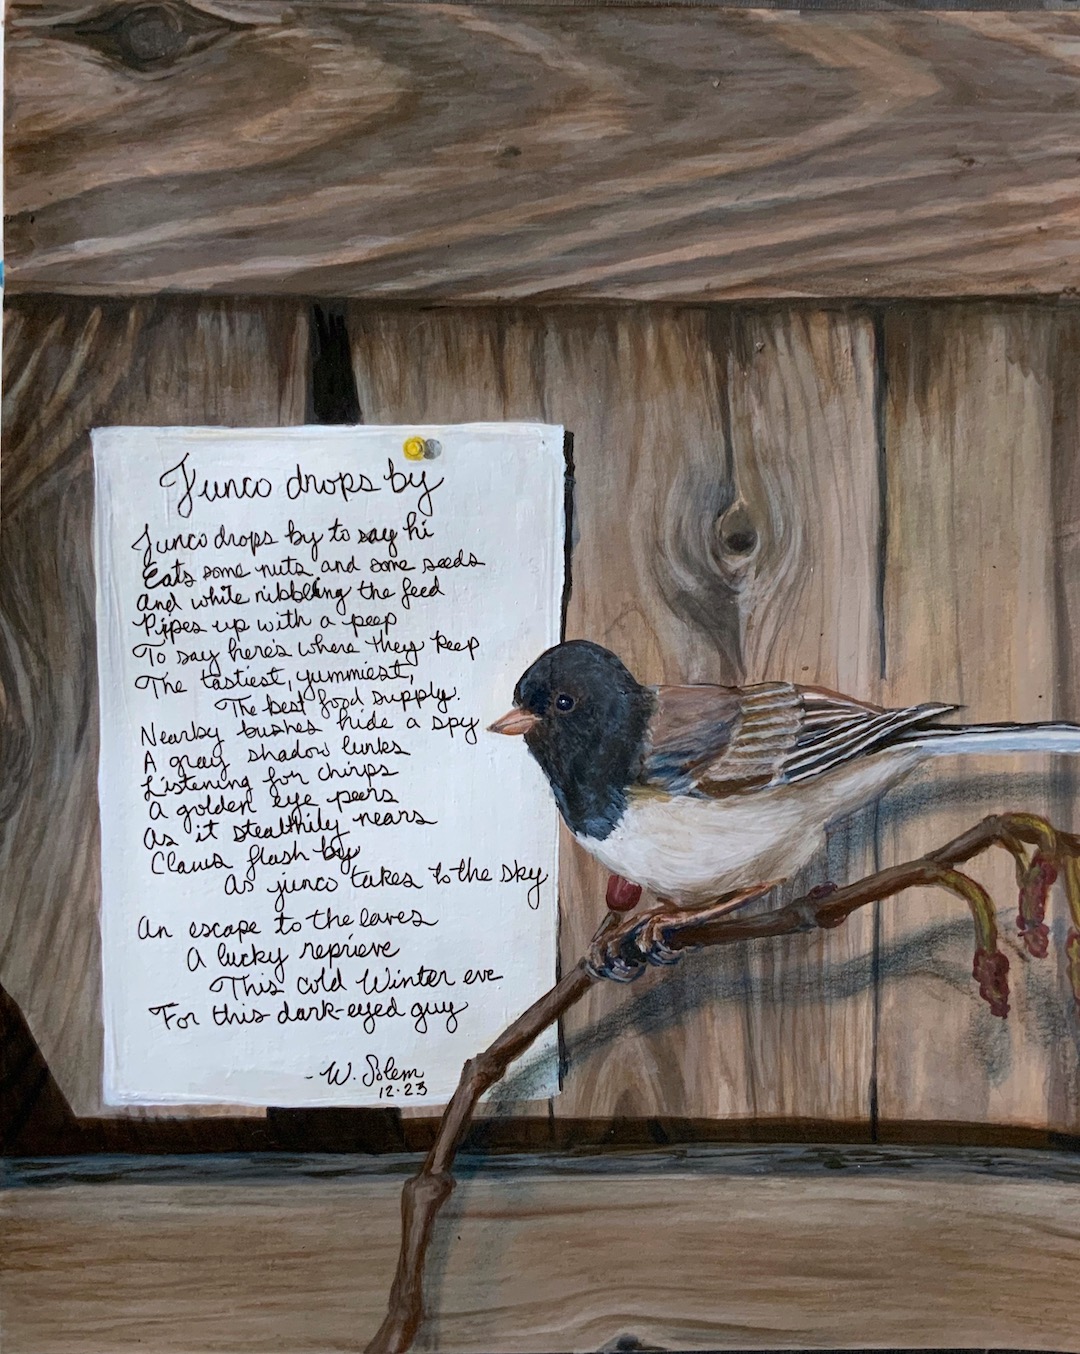 Junco drops by
Junco drops by to say hi
Eats some nuts and some seeds
And while nibbling the feed
Pipes up with a peep
To say here's where they keep
The tastiest, yummiest,
The best food supply.
Nearby bushes hide a spy
A gray shadow lurks
Listening for chirps
A golden eye peers
As it stealthily nears
Claws flash by
As junco takes to the sky
An escape to the eaves
A lucky reprieve
This cold Winter eve
For this dark-eyed guy
-W. Solem
12.23